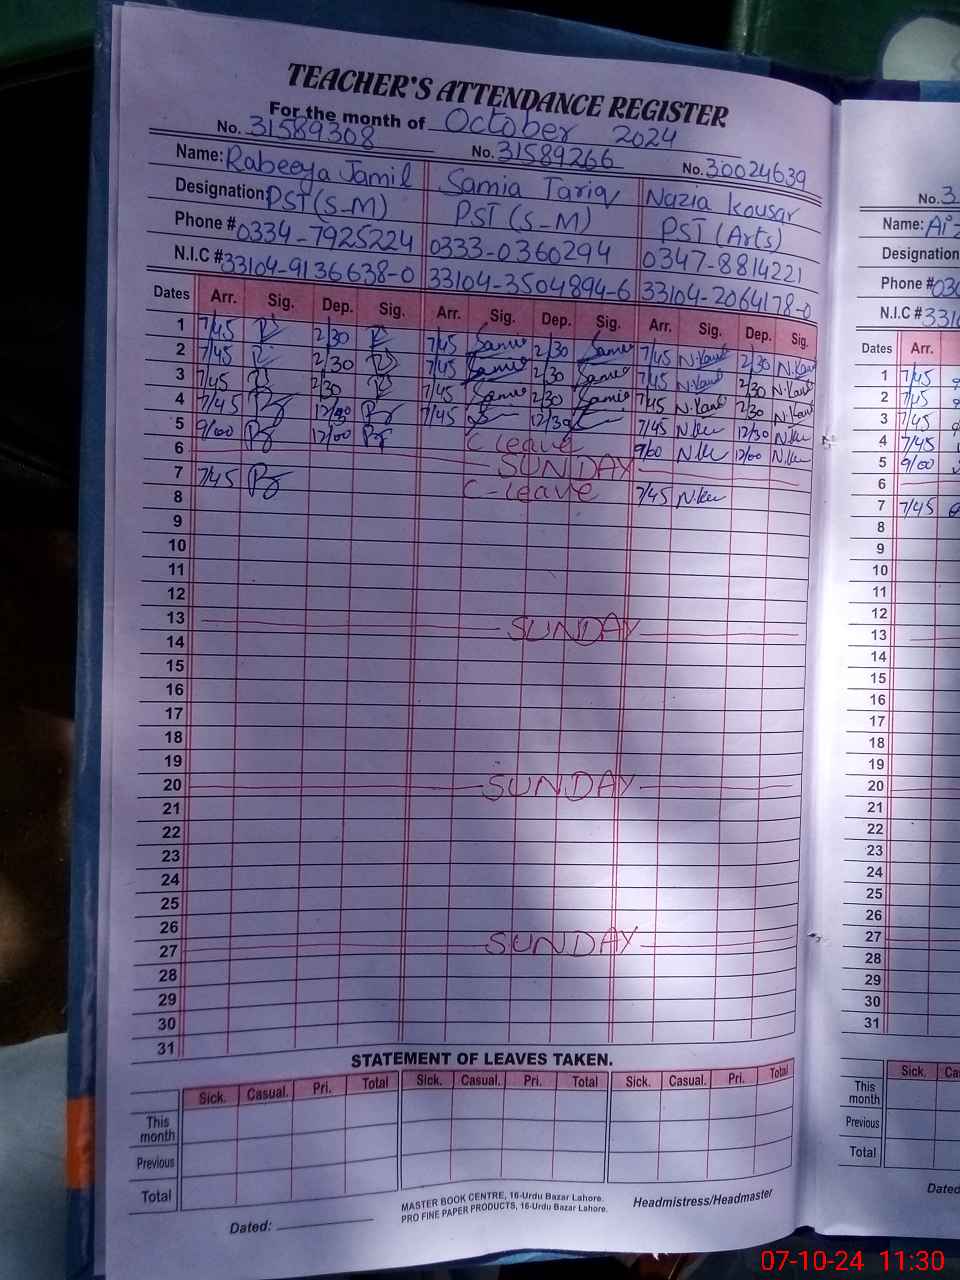 TEACHER'S ATTENDANCE REGISTER
For the month of October 2024
No. 31589308 No. 31589266 No. 30024639
Name: Rabeeya Jamil Samia Tariq Nazia Kousar
Designation: PST (S-M) PST (S-M) PST (Arts)
Phone # 0334-7925224 0333-0360294 0347-8814221
N.I.C # 33104-9136638-0 33104-3504894-6 33104-2064178-0
Dates Arr. Sig. Dep. Sig. Arr. Sig. Dep. Sig. Arr. Sig. Dep. Sig.
1 7/45 2/30 7/45 Samia 2/30 Samia 7/45 N.Kau 2/30 N.Kau
2 7/45 2/30 7/45 Samia 2/30 Samia 7/45 N.Kau 2/30 N.Kau
3 7/45 2/30 7/45 Samia 2/30 Samia 7/45 N.Kau 2/30 N.Kau
4 7/45 7/45 12/30 7/45 N.Ku 12/30 N.Ku
5 9/00 12/00 C leave 9/00 N.Ku 12/00 N.Ku
6 SUNDAY
7 7/45 C-leave 7/45 N.Ku
8
9
10
11
12
13 SUNDAY
14
15
16
17
18
19
20 SUNDAY
21
22
23
24
25
26
27 SUNDAY
28
29
30
31
STATEMENT OF LEAVES TAKEN.
Sick. Casual. Pri. Total Sick. Casual. Pri. Total Sick. Casual. Pri. Total
This month
Previous
Total
Dated:
MASTER BOOK CENTRE, 16-Urdu Bazar Lahore.
PRO FINE PAPER PRODUCTS, 16-Urdu Bazar Lahore.
Headmistress/Headmaster
No. 3
Name:
Designation
Phone # 030
N.I.C # 331
Dates Arr.
1 7/45
2 7/45
3 7/45
4 7/45
5 9/00
6
7 7/45
8
9
10
11
12
13
14
15
16
17
18
19
20
21
22
23
24
25
26
27
28
29
30
31
Sick.
This month
Previous
Total
07-10-24 11:30